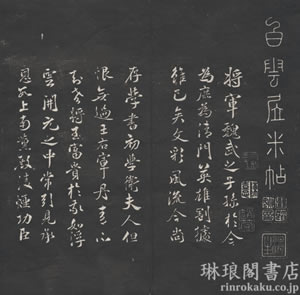 白雲居米帖
将軍魏武之子孫於今
為庶為清門英雄割據
雖已矣文彩風流今尚
存學書初學衛夫人但
恨無過王右軍丹青不
知老將至富貴於我如浮
雲開元之中常引見承
恩數上南薰殿凌煙功臣
琳琅閣書店
rinrokaku.co.jp